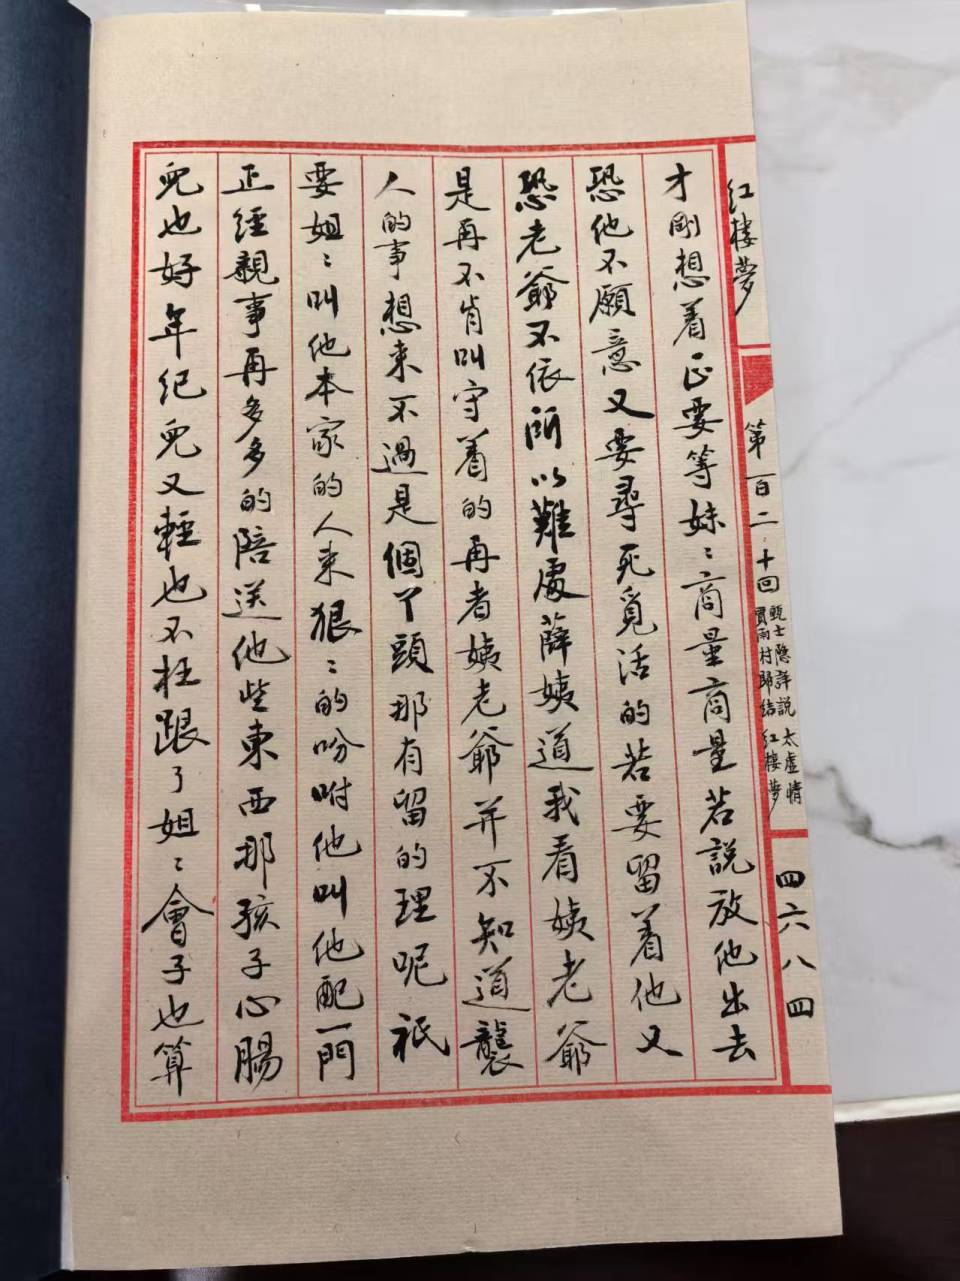 红楼夢
第一百二十回
甄士隐詳説太虚情
賈雨村歸結红樓夢
四六八四
才剛想着正要等妹〻商量商量若說放他出去
恐他不願意又要尋死覓活的若要留着他又
恐老爺不依所以難處薛姨道我看姨老爺
是再不肯叫守着的再者姨老爺并不知道襲
人的事想来不過是個丫頭那有留的理呢祇
要姐〻叫他本家的人来狠〻的吩咐他叫他配一門
正經親事再多多的陪送他些東西那孩子心腸
兒也好年纪兒又輕也不枉跟了姐〻會子也算